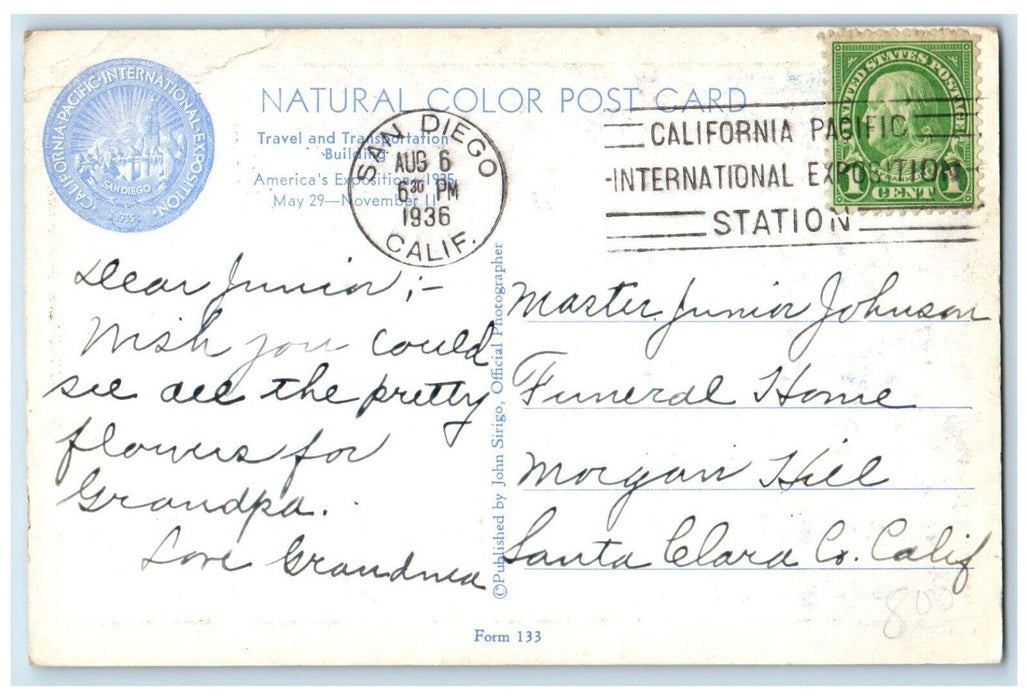 CALIFORNIA·PACIFIC·INTERNATIONAL·EXPOSITION
SAN DIEGO
1935
NATURAL COLOR POST CARD
Travel and Transportation
Building
America's Exposition—1935
May 29—November 11
SAN DIEGO
AUG 6
6 30 PM
1936
CALIF.
CALIFORNIA PACIFIC
INTERNATIONAL EXPOSITION
STATION
UNITED STATES POSTAGE
1 CENT 1
Dear Junior;-
Wish you could
see all the pretty
flowers for
Grandpa.
Love Grandma
©Published by John Sirigo, Official Photographer
Master Junior Johnson
Funeral Home
Morgan Hill
Santa Clara Co. Calif
800
Form 133